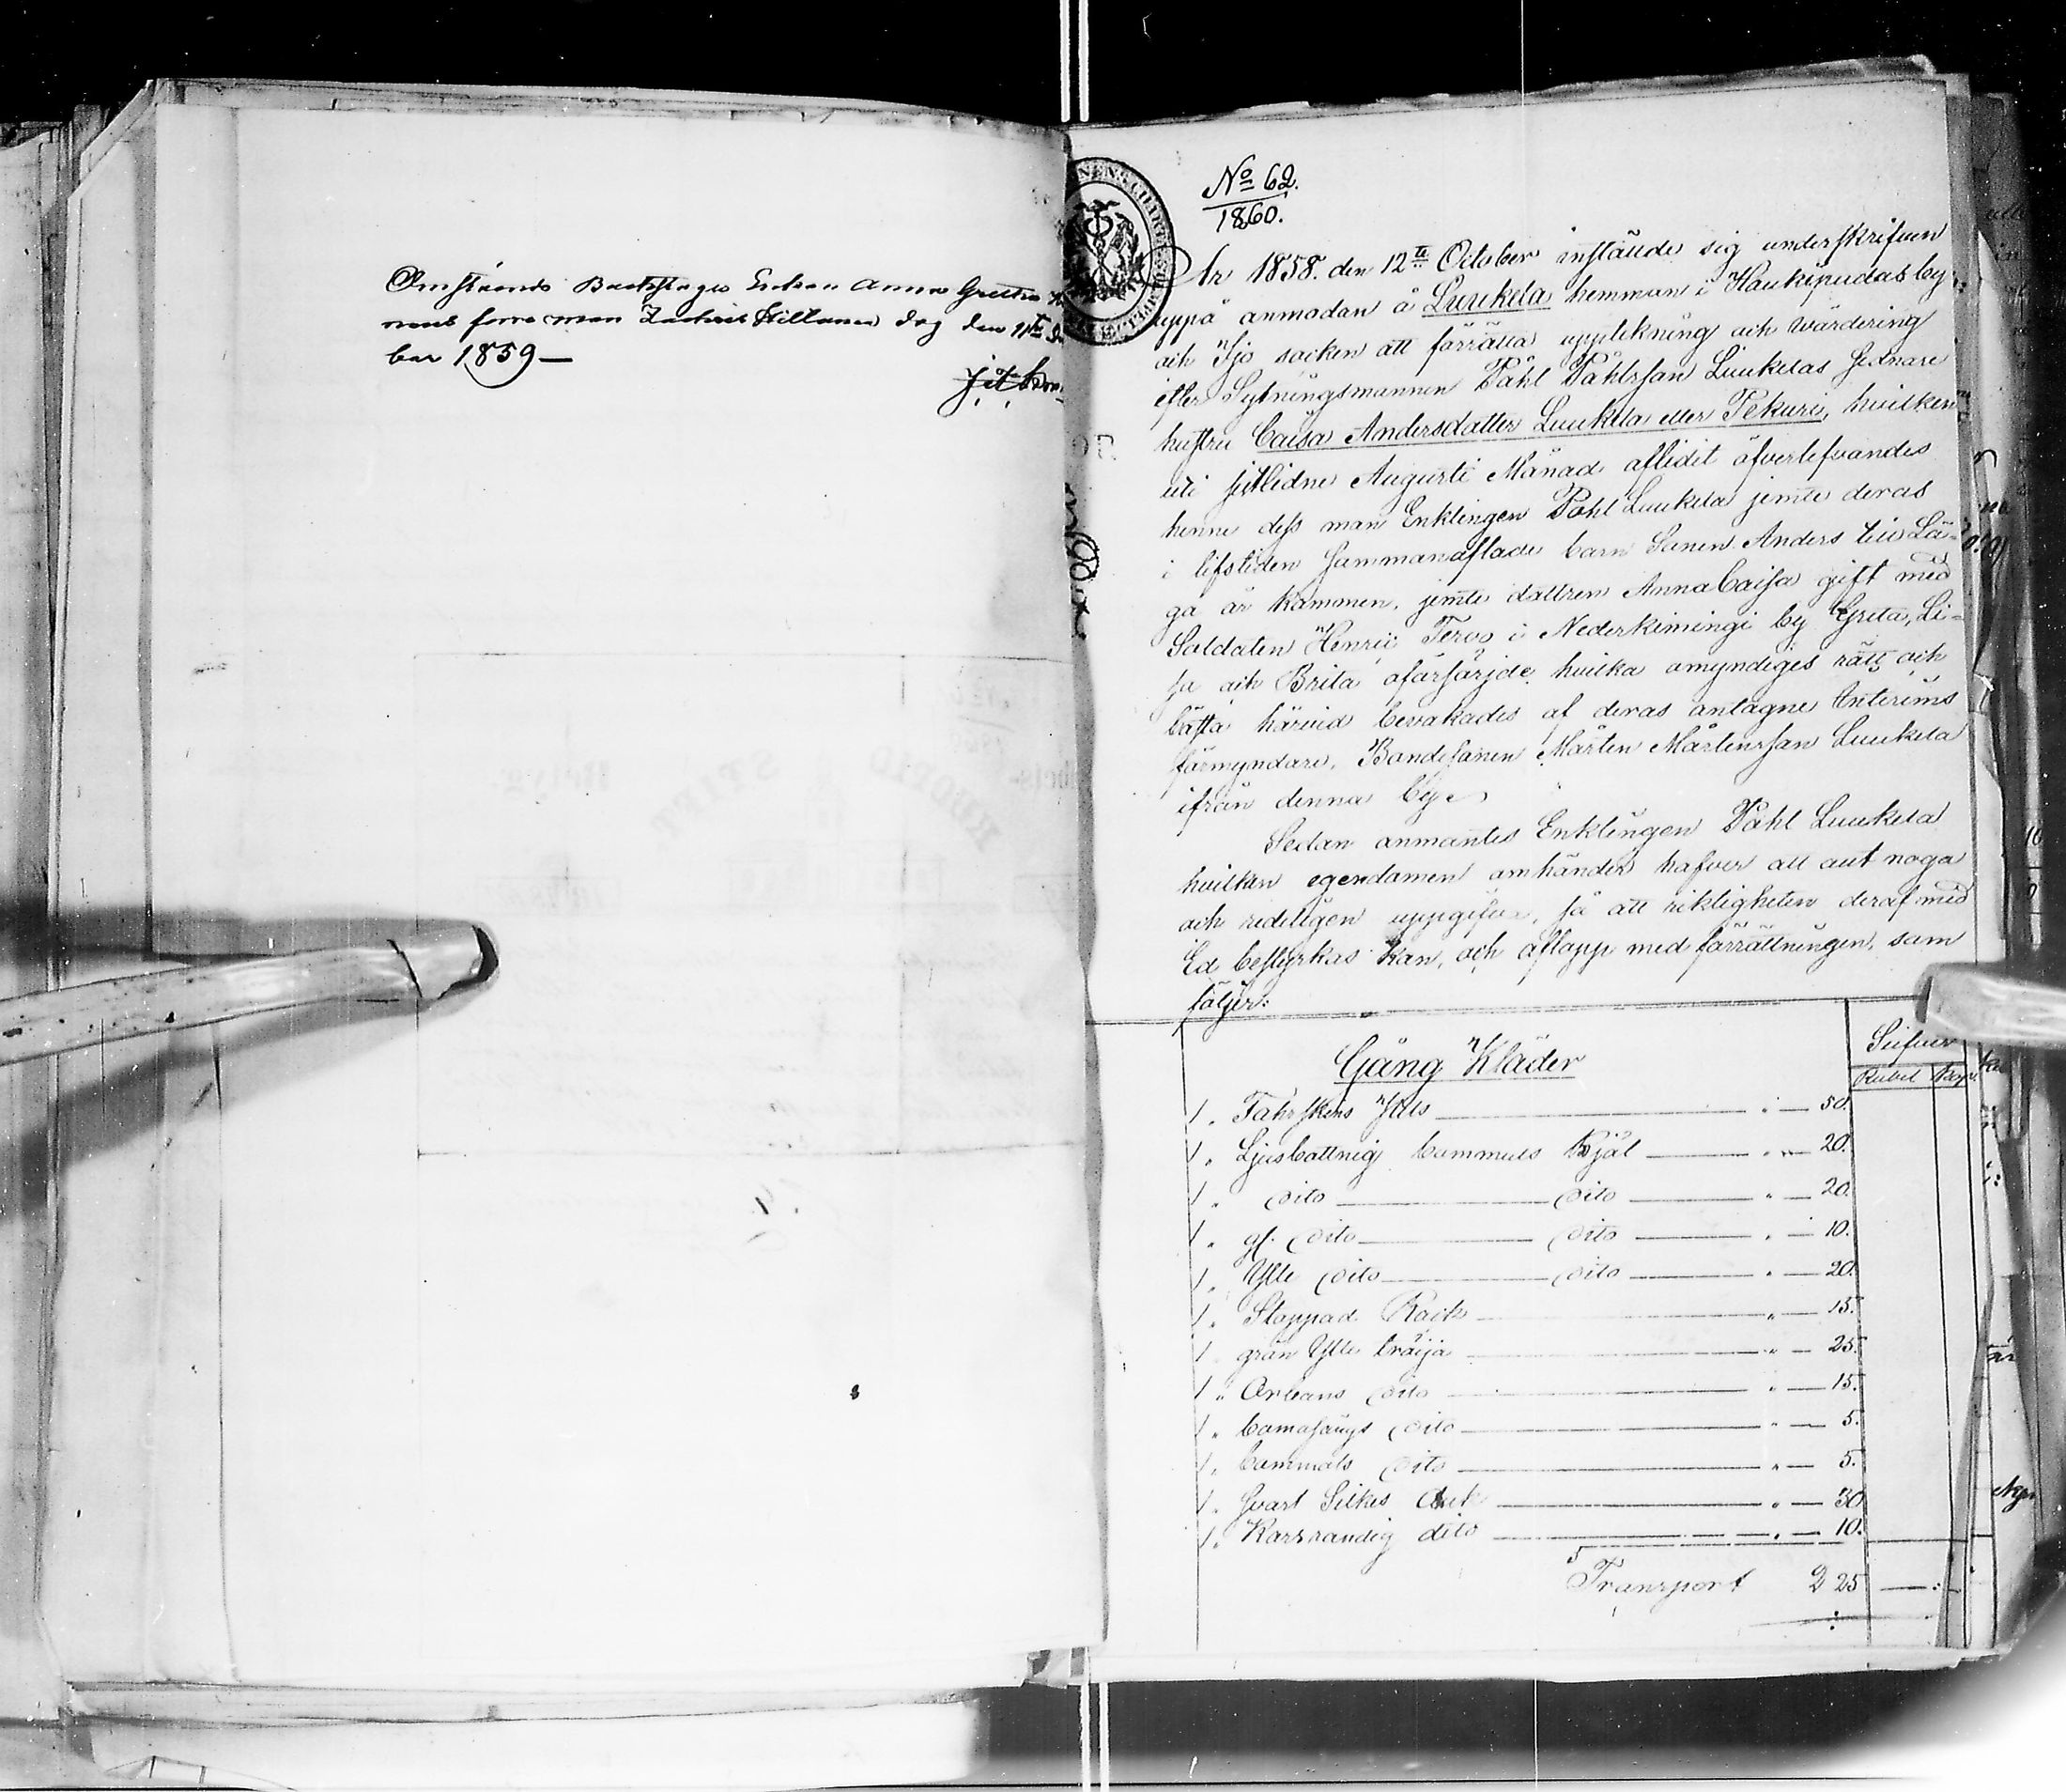 Omstående Backstugo Enkan Anna Greta
nens förre man Zachris Hillanen dog den 11te
ber 1859 —
No 62.
1860.
År 1858. den 12te October instälde sig underskrifven
uppå anmodan å Luukela hemman i Haukipudas by
och Ijo socken att förrätta uppteckning och wärdering
efter Sytningsmannen Påhl Påhlsson Luukelas sednare
hustru Caisa Andersdotter Luukela eller Tekuri, hvilken
uti sistlidne Augusti Månad aflidit öfverlefvandes
henne dess man Enklingen Påhl Luukela jemte deras
i lifstiden sammanaflade barn Sonen Anders till La-
ga år kommen, jemte dottren Anna Caisa gift med
Soldaten Henric Tervo i Nederkimingi by Greta, Li-
sa och Brita oförsörjde hvilka omyndiges rätt och
bästa härvid bevakades af deras antagne Interims
förmyndare, Bondesonen Mårten Mårtensson Luukela
ifrån denna by
Sedan anmantes Enklingen Påhl Luukela
hvilken egendomen omhänder hafver att ant noga
och redeligen uppgifva, så att riktigheten deraf med
Ed bestyrkas kan, och aflopp med förrättningen, som
följer:
Gång Kläder
Silfver
Rubel Kop
1. Fåhrskins — 50.
1. Ljusbottnig Commuls Kjol — 20.
1. dito — dito — 20.
1. gl. dito — dito — 10.
1. Ylle dito — dito — 20.
1. Stoppad Råck — 15.
1. grön Ylle tröija — 25.
1. Orleans dito — 15.
1. dito — 5.
1. Commuls dito — 5.
1. svart Silkes duk — 30
1. Korsrandig dito — 10.
Transport 2 25 — : —